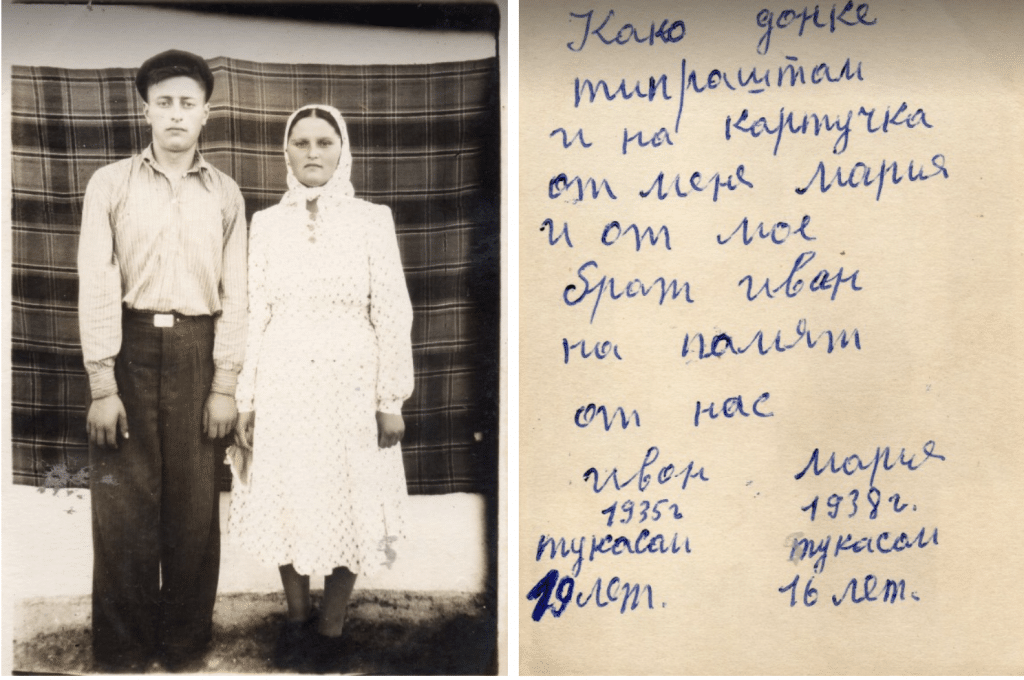 Како донке
типраштам
и на картучка
от меня мария
и от мое
брат иван
на памят
от нас
иван мария
1935г 1938г.
тукасам тукасам
19 лет. 16 лет.